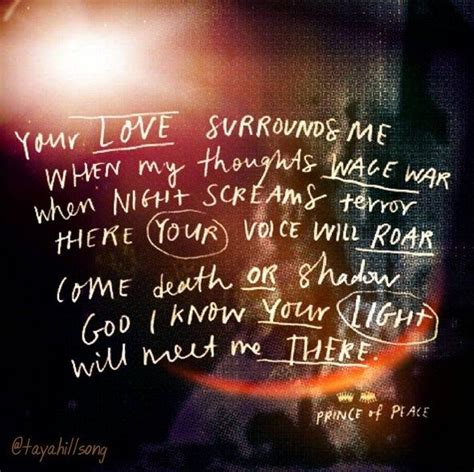 Your LOVE SURROUNDS ME
WHEN my thoughts WAGE WAR
when NIGHT SCREAMS terror
tHERE YOUR VOICE WILL ROAR
COME death OR Shadow
GOD I KNOW YOUR LIGHT
will meet me THERE.
PRINCE of PEACE
@tayahillsong